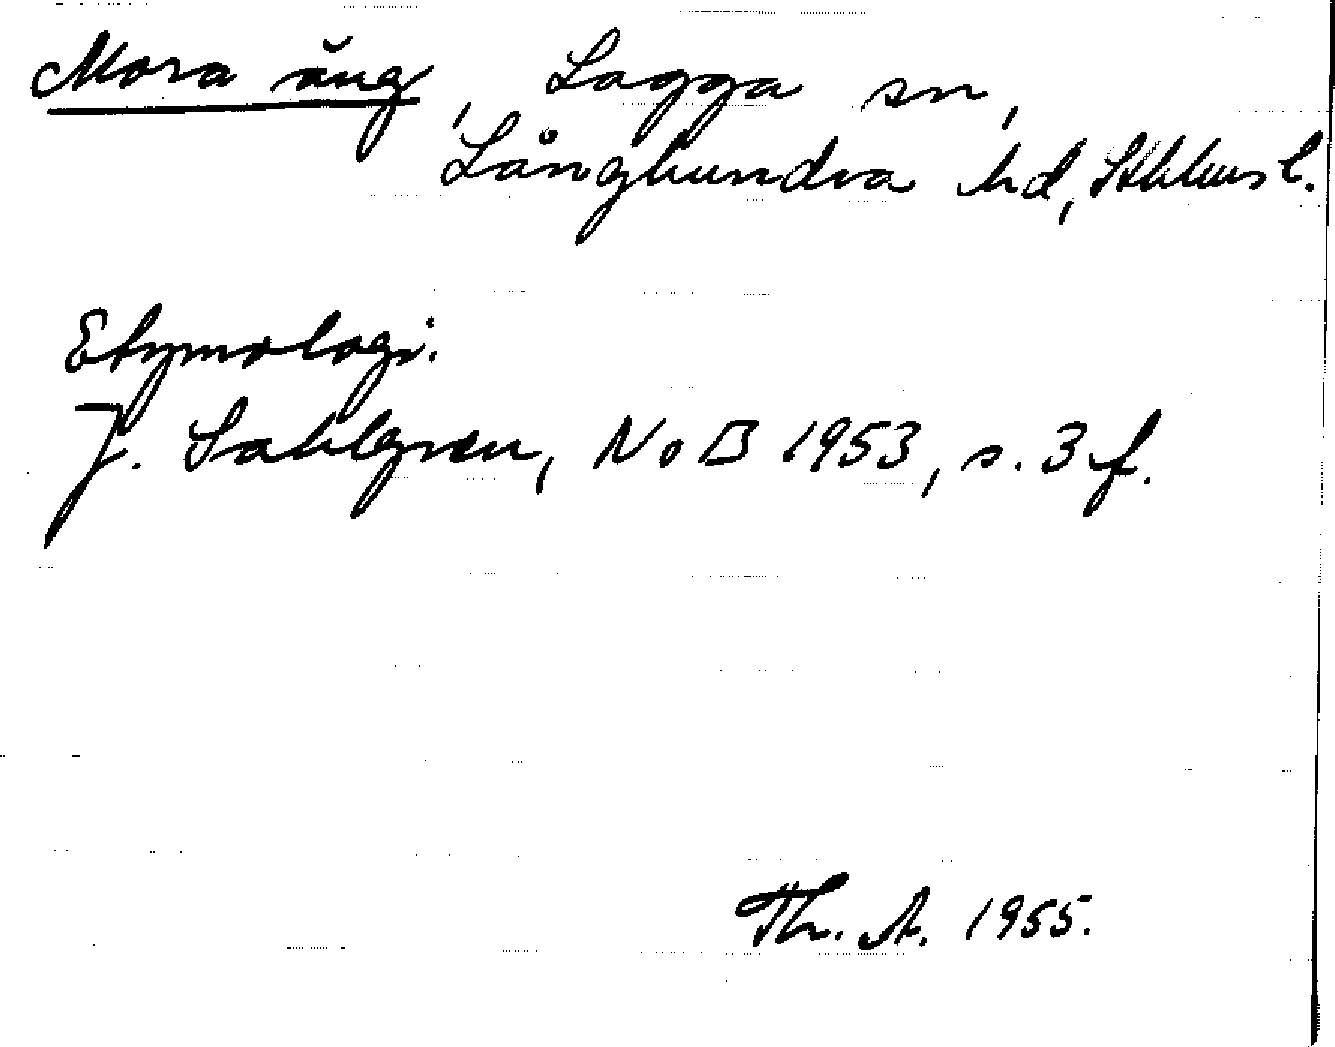 Mora äng, Lagga sn,
Långhundra hd, Sthlms l.
Etymologi.
J. Sahlgren, NoB 1953, s. 3 f.
Th. A. 1955.